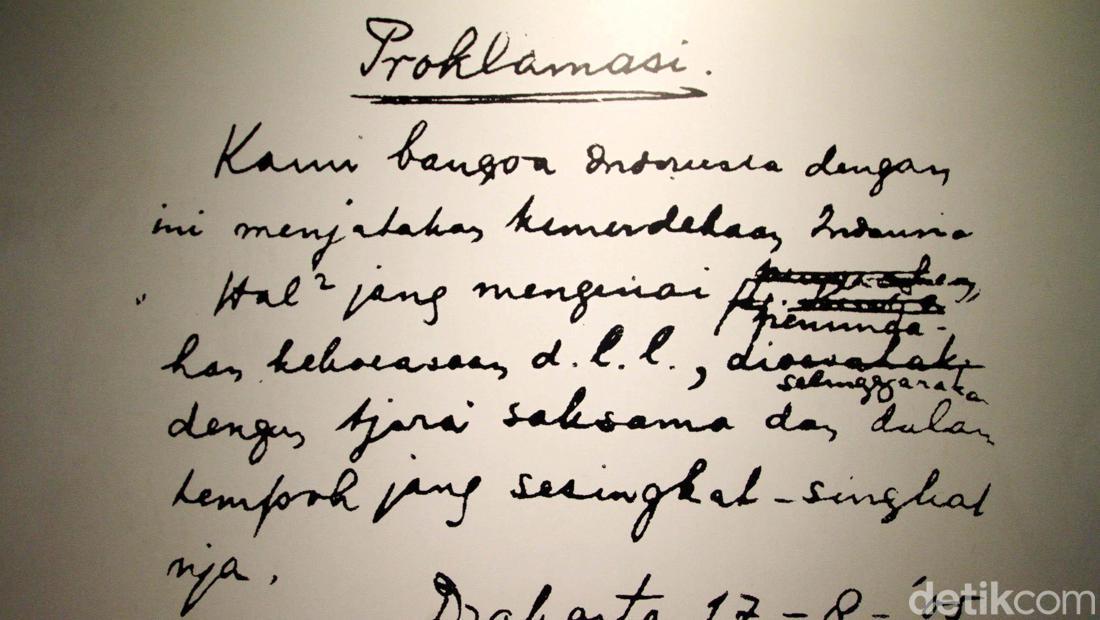 Proklamasi.
Kami bangsa Indonesia dengan
ini menjatakan kemerdekaan Indonesia
Hal² jang mengenai
peminda-
han kekoeasaan d.l.l., dioesahak-
selenggarakan
dengan tjara saksama dan dalam
tempoh jang sesingkat-singkat
nja.
Djakarta 17 - 8 - '05
detikcom